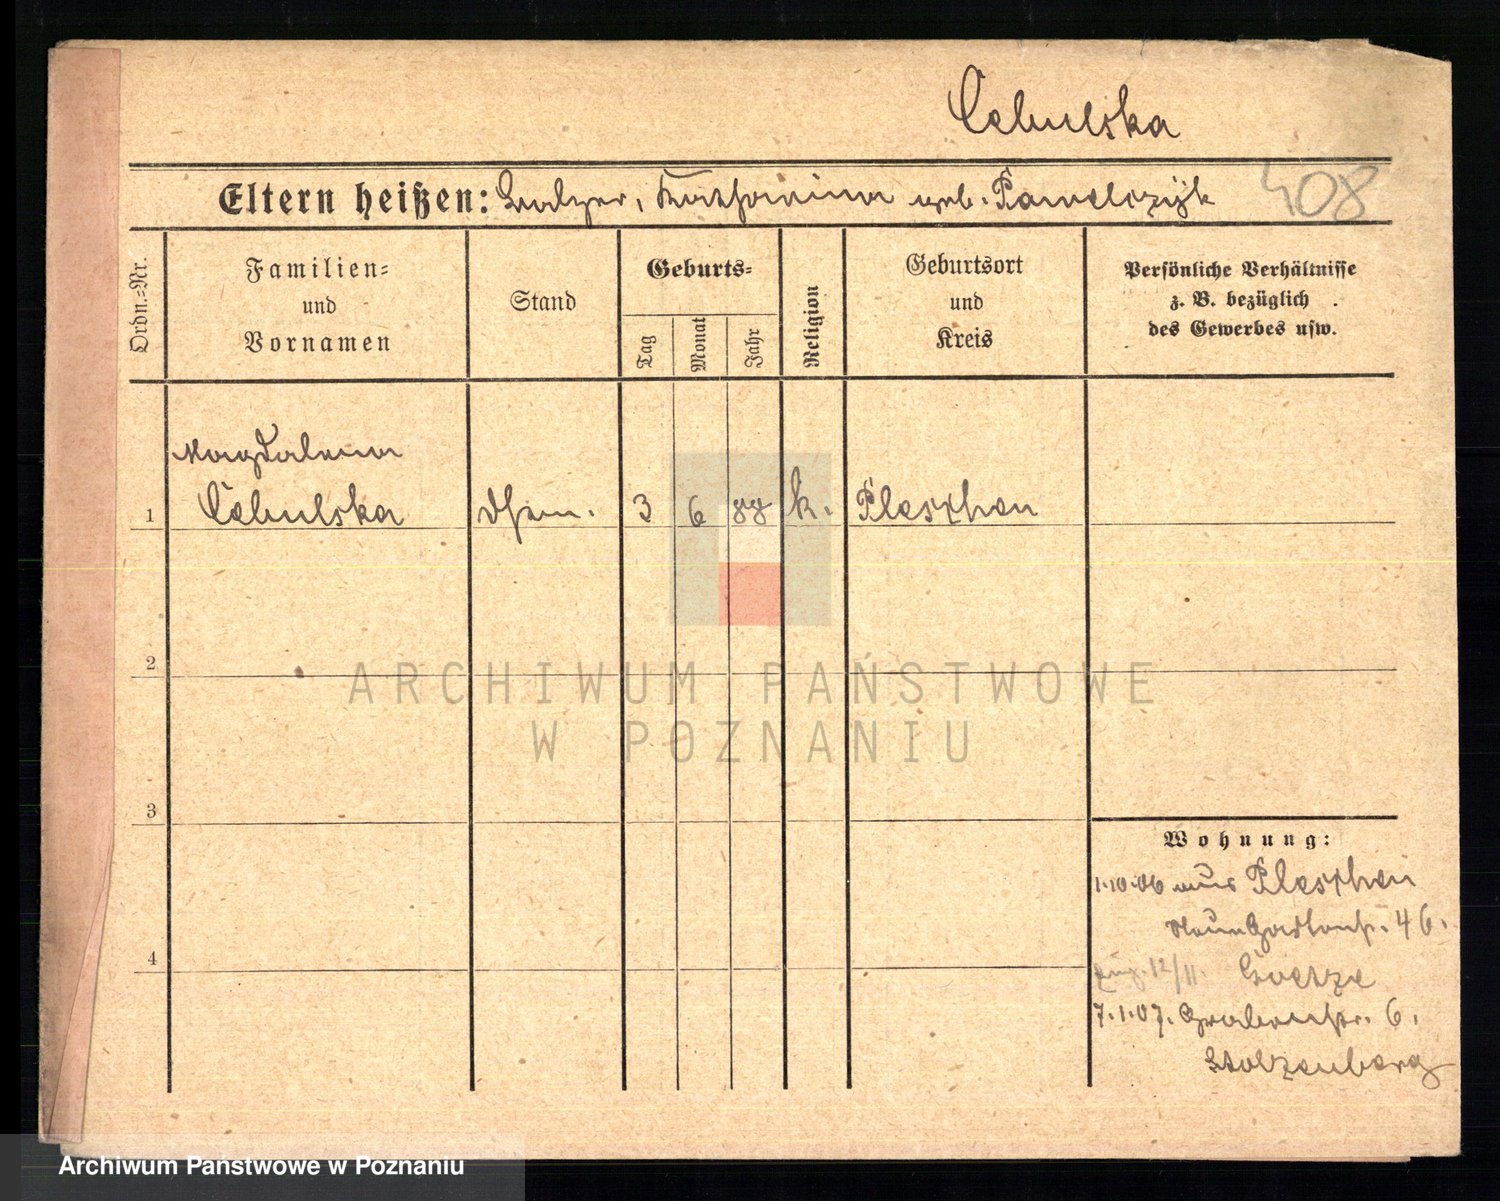 Cebulska
Eltern heißen: Balzer, Katharina geb. Pawelczyk
408
Ordn.=Nr.
Familien=
und
Vornamen
Stand
Geburts=
Tag
Monat
Jahr
Religion
Geburtsort
und
Kreis
Persönliche Verhältnisse
z. B. bezüglich
des Gewerbes usw.
Magdalena
1 Cebulska 3 6 88 k. Pleschen
2
3
4
Wohnung:
1.10.06 aus Pleschen
Neue Gartenstr. 46.
12/11. Goetze
7.1.07. Grabenstr. 6.
Stolzenberg
ARCHIWUM PAŃSTWOWE
W POZNANIU
Archiwum Państwowe w Poznaniu